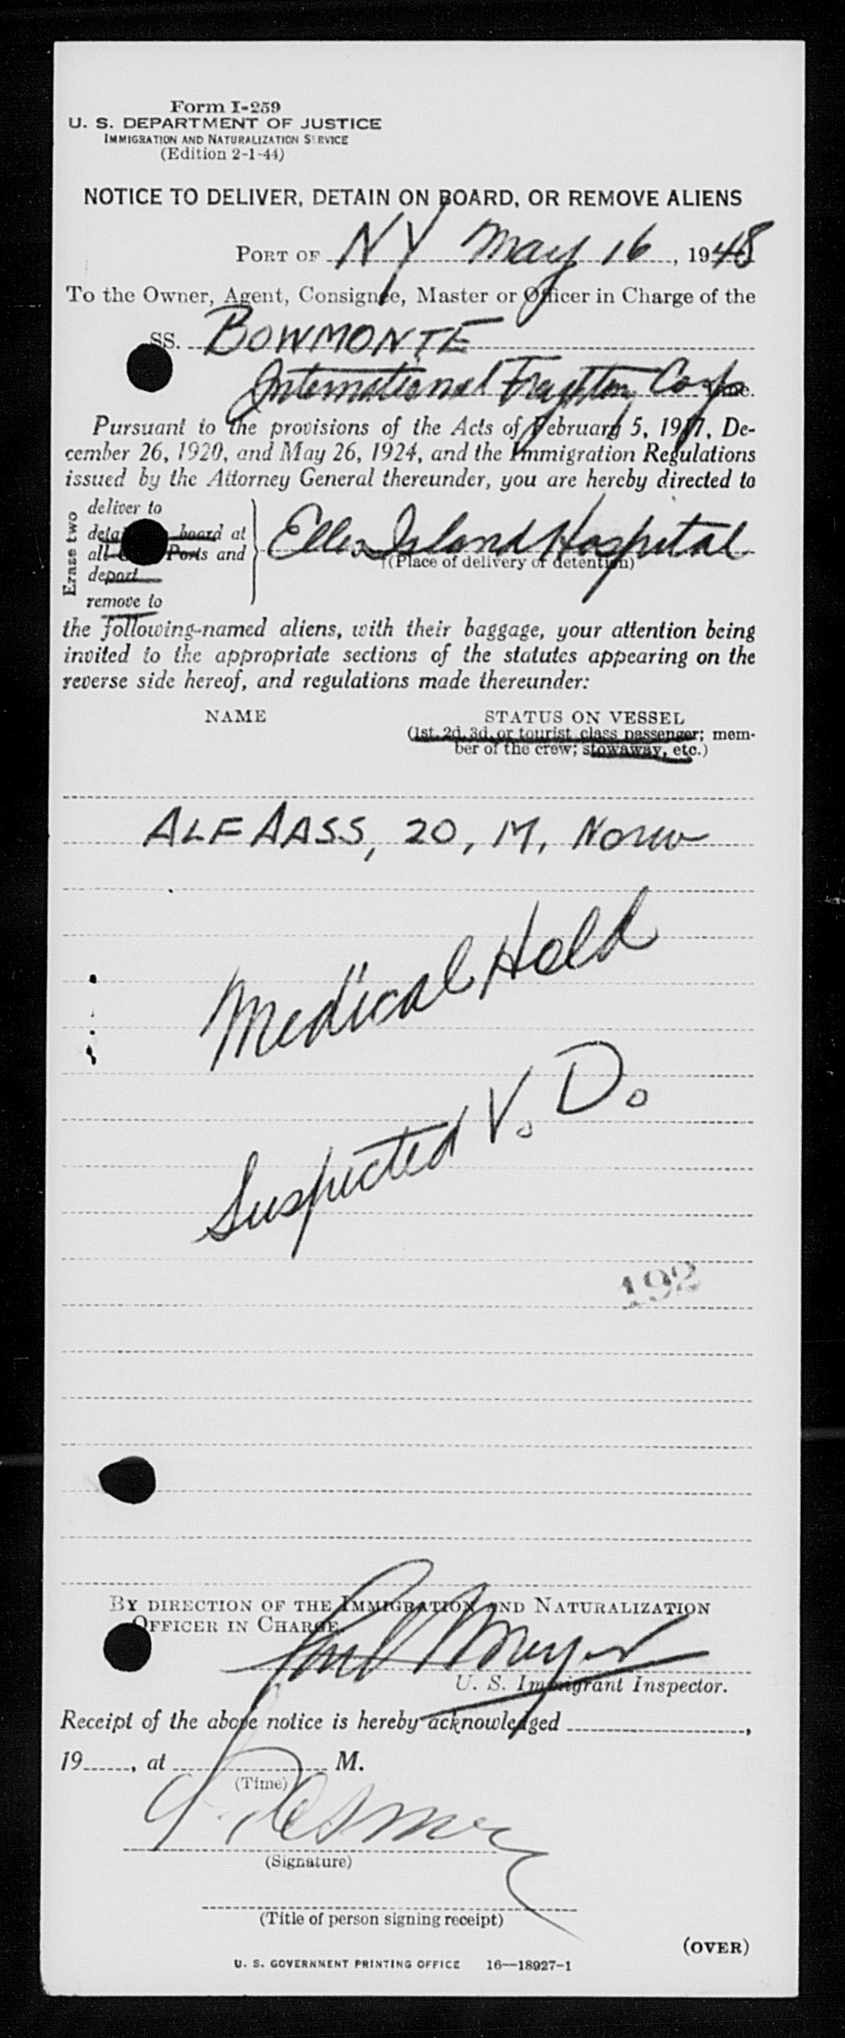 Form I-259
U. S. DEPARTMENT OF JUSTICE
IMMIGRATION AND NATURALIZATION SERVICE
(Edition 2-1-44)
NOTICE TO DELIVER, DETAIN ON BOARD, OR REMOVE ALIENS
PORT OF NY May 16, 1948
To the Owner, Agent, Consignee, Master or Officer in Charge of the
SS. BOWMONTE
International Corp
Pursuant to the provisions of the Acts of February 5, 1917, De-
cember 26, 1920, and May 26, 1924, and the Immigration Regulations
issued by the Attorney General thereunder, you are hereby directed to
Erase two
deliver to
board at
all Ports and
deport
remove to
Ellis Island Hospital
(Place of delivery or detention)
the following-named aliens, with their baggage, your attention being
invited to the appropriate sections of the statutes appearing on the
reverse side hereof, and regulations made thereunder:
NAME STATUS ON VESSEL
(1st, 2d, 3d, or tourist class passenger; mem-
ber of the crew; stowaway, etc.)
ALF AASS, 20, M, Norw
Medical Hold
Suspected V. D.
192
BY DIRECTION OF THE IMMIGRATION AND NATURALIZATION
OFFICER IN CHARGE.
U. S. Immigrant Inspector.
Receipt of the above notice is hereby acknowledged ,
19 , at M.
(Time)
(Signature)
(Title of person signing receipt)
(OVER)
U. S. GOVERNMENT PRINTING OFFICE 16—18927-1